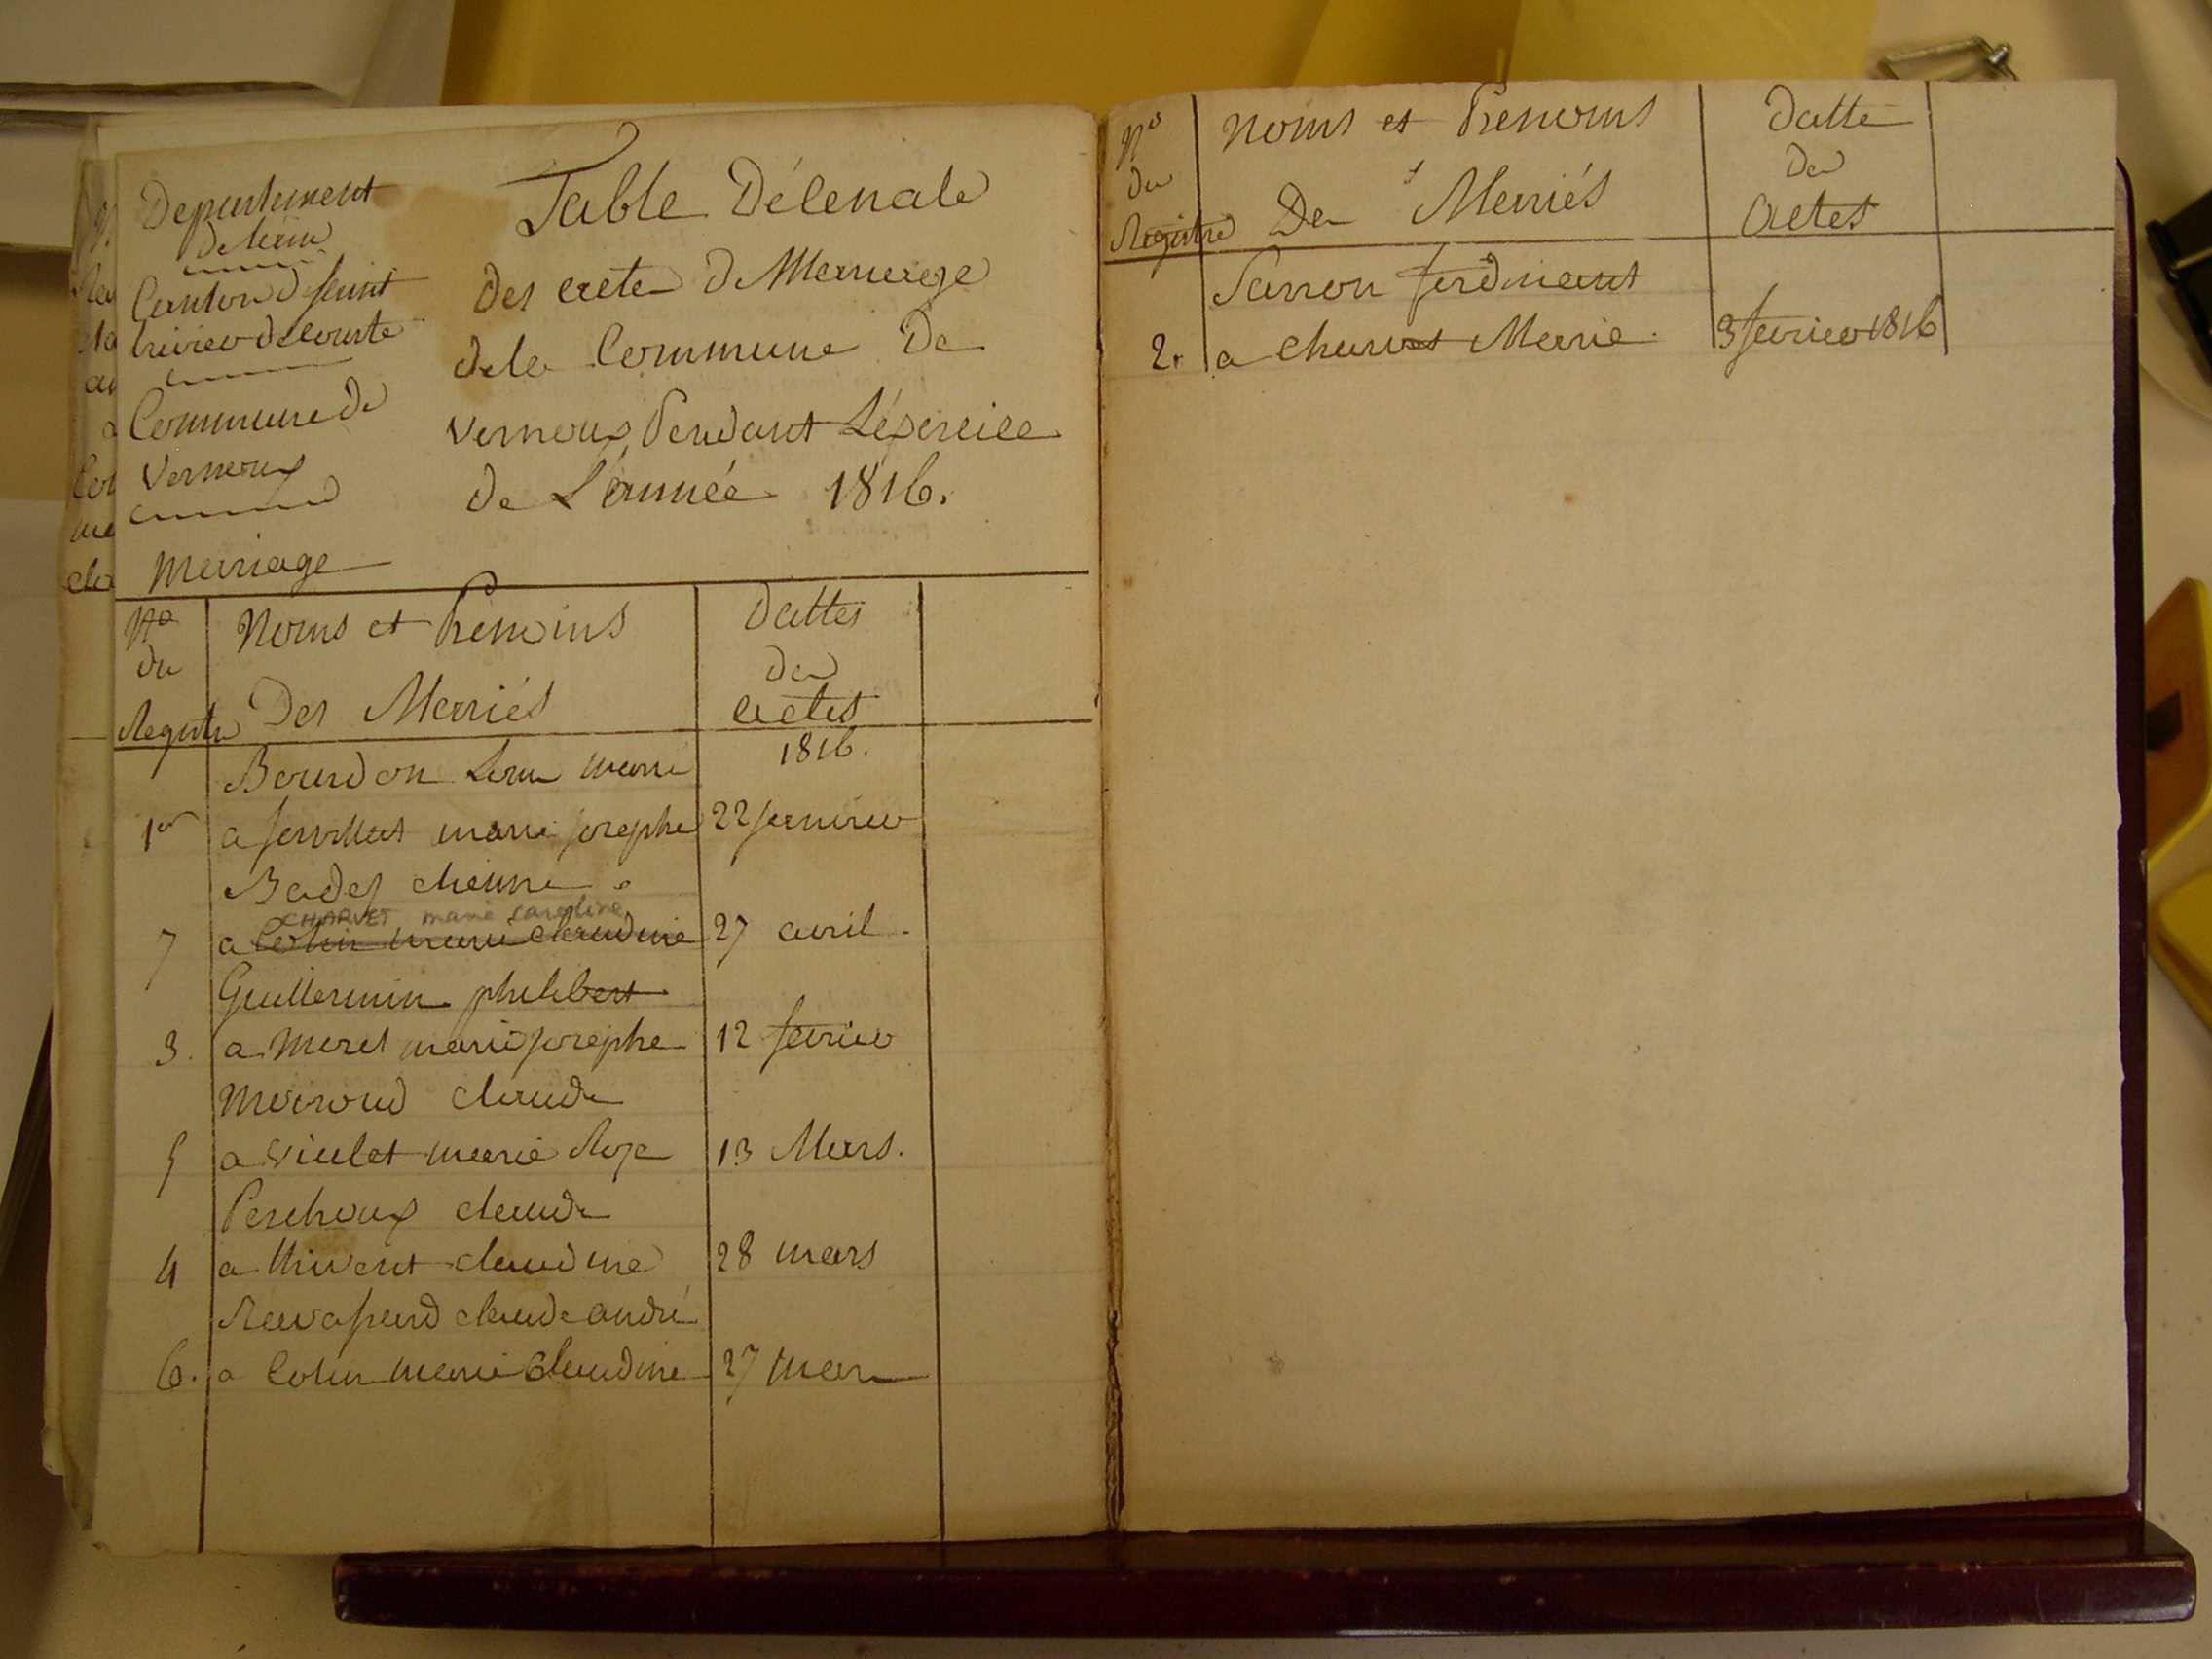 Departement
De lain
Canton d saint
trivier de Courte
Commune de
Vernoux
mariage
Table Décenale
Des acte D Mariage
dela Commune De
Vernoux Pendant Léxercice
de L'année 1816.
No
du
Registre
Noms et Prenoms
Des Mariés
Dattes
des
actes
1816.
Bourdon marie
1er a marie josephe 22 janvier
Badez
CHARVET marie caroline
7 a Colin marie claudine 27 avril.
Guillermin philibert
3. a Morel marie josephe 12 fevrier
Moiroud claude
5 a violet marie Roze 13 Mars.
Perchoux claude
4 a thivent claudine 28 mars
claude andré
6. a Colin marie Claudine 27 mars
No
du
Registre
Noms et Prenoms
Des Mariés
Datte
des
Actes
ferdinant
2. a Charvet Marie. 3 fevrier 1816